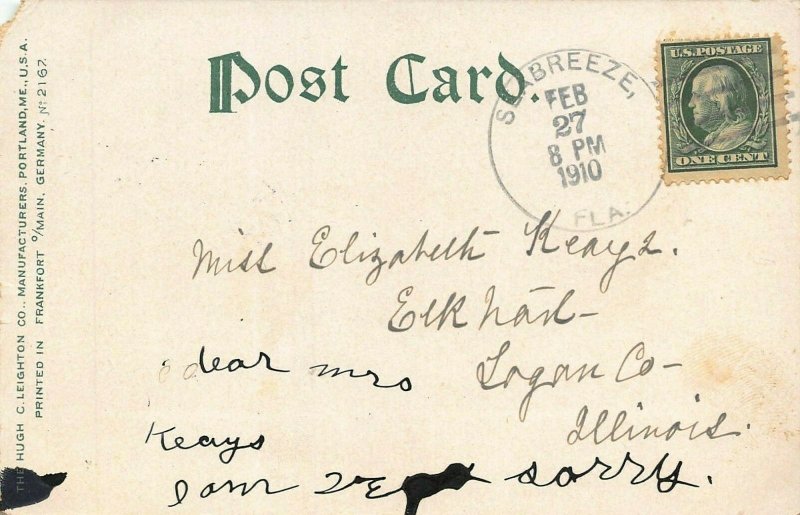 Post Card.
SEABREEZE,
FEB
27
8 PM
1910
FLA.
U.S. POSTAGE
ONE CENT
Miss Elizabeth Keays.
Elkhart
Logan Co
Illinois.
dear mrs
Keays
I am sorry.
THE HUGH C. LEIGHTON CO., MANUFACTURERS, PORTLAND, ME., U.S.A.
PRINTED IN FRANKFORT O/MAIN, GERMANY. No 2167.